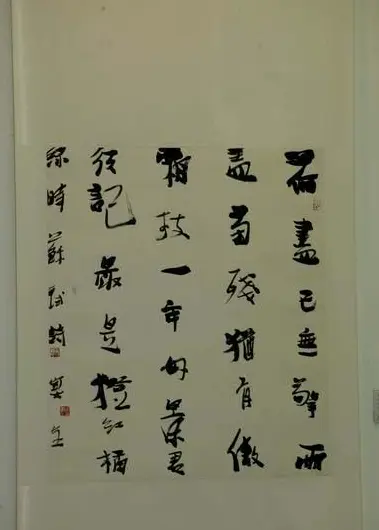 荷盡已無擎雨
蓋菊殘猶有傲
霜枝一年好景君
須記最是橙紅橘
綠時 蘇軾詩